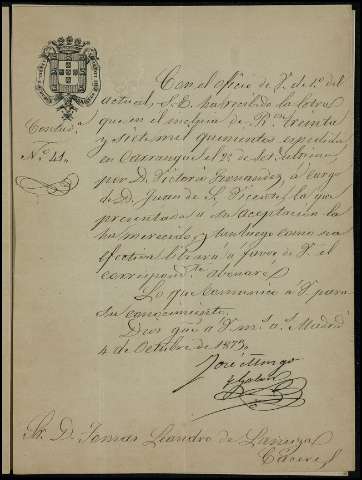 Contad.ª
N.º 41.
Con el oficio de V. de 1.º del
actual, S. E. ha recibido la letra
que en el mismo de R.ˢ treinta
y siete mil quinientos expedida
en Carranque el 28 de Set. último
por D. Victorio Fernandez, a cargo
de D. Juan de S. Vicente, la que
presentada a su aceptacion la
ha merecido, y tan luego como sea
efectiva librará a favor de V. el
correspond.ᵗᵉ abonaré.
Lo que comunico a V. para
su conocimiento.
Dios gue a V. m.ˢ a.ˢ Madrid
4 de Octubre de 1873.
José
Sr. D. Tomas Leandro de
Cáceres